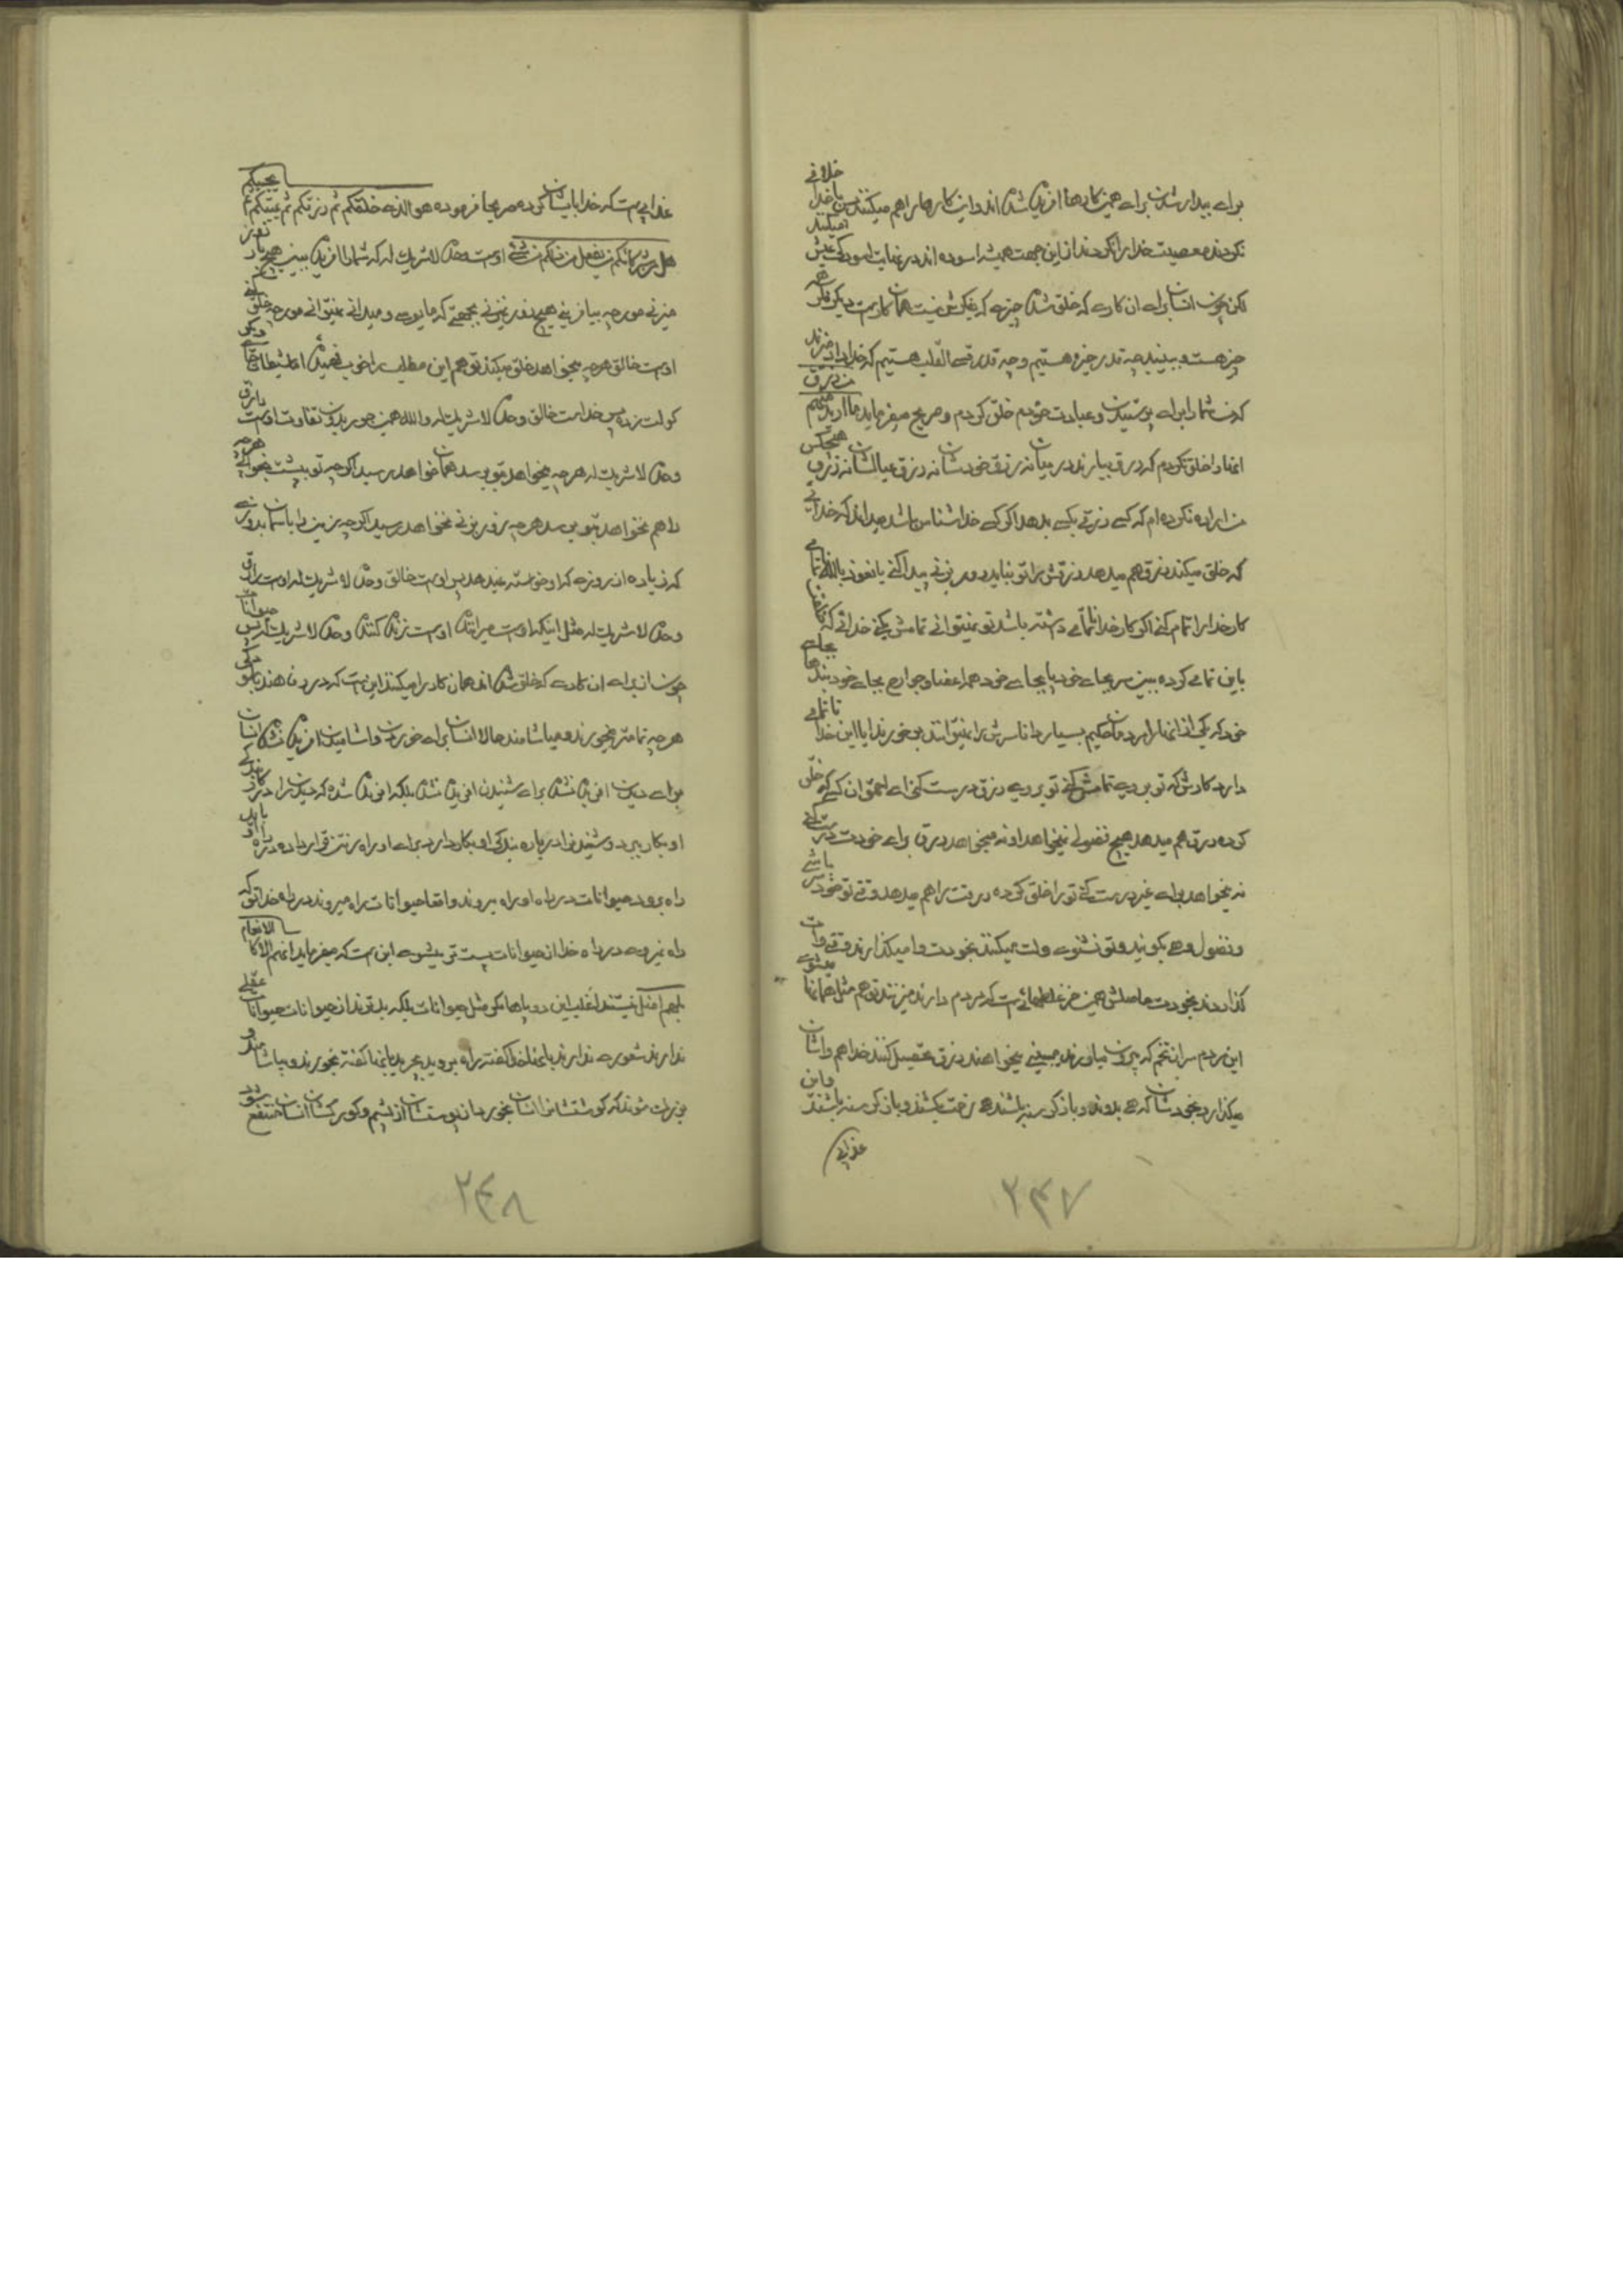 برای بیدار شدن برای همین کارها آفریده شده‌اند و این کارها را هم میکنند پس با خدا خلافی
نکردند معصیت خدا را نکردند از این جهت همیشه آسوده‌اند در نهایت آسودگی عیش میکنند
لکن چون انسان برای آن کاری که خلق شده چیزی که فکرش نیست همان کار است دیگر فکر همه
چیز هست و ببینید چه قدر خیره هستیم و چه قدر قسی القلب هستیم که خدا داد میزند
که من شما را برای پرستیدن و عبادت خودم خلق کردم و صریح میفرماید ما ارید منهم من رزق
اینها را خلق نکردم که رزق بیارند در میان نه رزق خودشان نه رزق عیالشان نه رزق هیچکس
من اراده نکرده‌ام که کسی رزقی بکسی بدهد اگر کسی خداشناس باشد میداند که خدائی
که خلق میکند رزق هم میدهد رزقش را تو نباید دور بزنی پیدا کنی یا نعوذ بالله ناتمامی
کار خدا را تمام کنی اگر کار خدا ناتمامی داشته باشد تو نمیتوانی تمامش بکنی خدائی که
باین تمامی کرده ببین سر بجای خود پا بجای خود همه اعضا و جوارح بجای خود بندها بجای
خود که یکی از اینها را مردمان حکیم بسیار دانا سرش را نمیتوانند بر بخورند آیا این خدا ناتمامی
دارد کارش که تو بروی تمامش کنی تو بروی رزق درست کنی ای احمق آن کسی که خلق
کرده رزق هم میدهد هیچ فضولی نمیخواهد او نه میخواهد رزق برای خودت درست کنی
نه میخواهد برای غیر درست کنی تو را خلق کرده رزقت را هم میدهد وقتی تو خودسر باشی
و فضول و هی بگویند و تو نشنوی ولت میکنند بخودت وا میگذارند وقتی وات
گذاردند بخودت حاصلش همین خر غلطهائی است که مردم دارند میزنند تو هم مثل همانها میشوی
این مردم سر از تخم که بیرون میاورند میبینی میخواهند رزق تحصیل کنند خدا هم واشان
میگذارد بخودشان که هی بدوند و باز گرسنه باشند هی زحمت بکشند و باز گرسنه باشند و این
عذابی
۲۴۷
عذابی است که خدا بایشان کرده صریحا فرموده هو الذی خلقکم ثم رزقکم ثم یمیتکم ثم یحییکم
هل من شرکائکم من یفعل من ذلکم من شیء اوست وحده لا شریک له که شما را آفریده ببین هیچ تو زور
میزنی مورچه بیافرینی هیچ زور نمیزنی بجهتی که مایوسی و میدانی نمیتوانی مورچه خلق کنی
اوست خالق هرچه میخواهد خلق میکند تو هم این مطلب را خوب فهمیده اما شیطان جای دیگر
گولت زده پس خداست خالق وحده لا شریک له والله همین جور بدون تفاوت اوست رازق
وحده لا شریک له هرچه میخواهد بتو برسد همان خواهد رسید اگرچه تو پیشت نخواهی هرچه
را هم نخواهد بتو برسد هرچه زور بزنی نخواهد رسید اگرچه زمین را باسمان بدوزی
که زیاده از روزی که او خواسته نمیدهد پس اوست خالق وحده لا شریک له اوست رازق
وحده لا شریک له مثل اینکه اوست میراننده اوست زنده کننده وحده لا شریک له پس حیوانات
چون از برای آن کاری که خلق شده‌اند همان کار را میکنند این است که درد مان هند
هرچه تمامتر میخورند و میاشامند حالا انسان برای خوردن و آشامیدن آفریده نشده انسان
برای دیدن آفریده نشده برای شنیدن آفریده نشده بلکه آفریده شده که دیدن را در بندگی
او بکار ببرد و شنیدن را در باره بندگی او بکار دارد برای او راه رفتن قرار داده در راه او باید
راه برود حیوانات در راه او راه میروند واقعا حیوانات راه میروند در راه خدا تو که
راه نمیروی در راه خدا از حیوانات پست‌تر میشوی این است که میفرماید ان هم الا کالانعام
بل هم اضل نیستند اغلب این دوپاها مگر مثل حیوانات بلکه بدترند از حیوانات حیوانات عقلی
ندارند شعوری ندارند باینها خدا گفته راه بروید بچرید باینها گفته بخورند و بیاشامند و
فربه شوند که گوشتشان را انسان بخورد از پوستشان از پشم و کورکشان انسان منتفع شود
۲۴۸